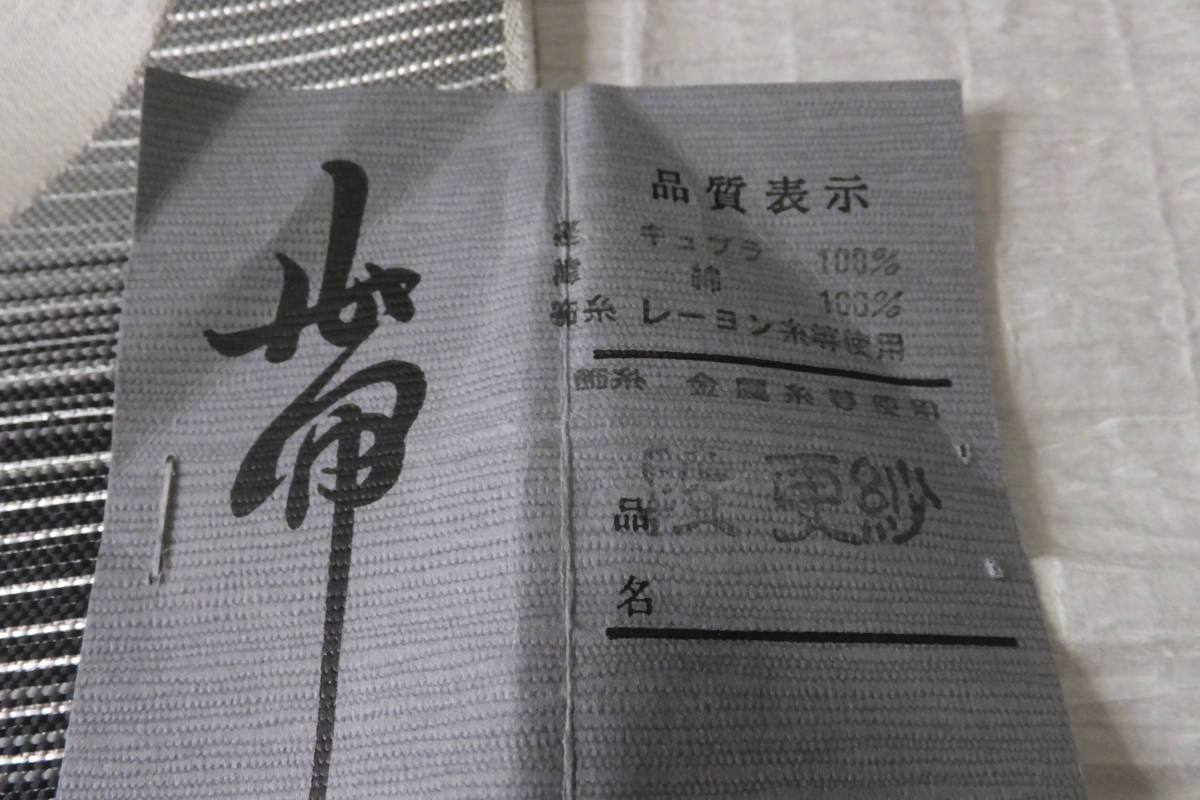 帯
品質表示
経 キュプラ 100%
緯 綿 100%
飾糸 レーヨン糸等使用
飾糸 金属糸等使用
品 段更紗
名